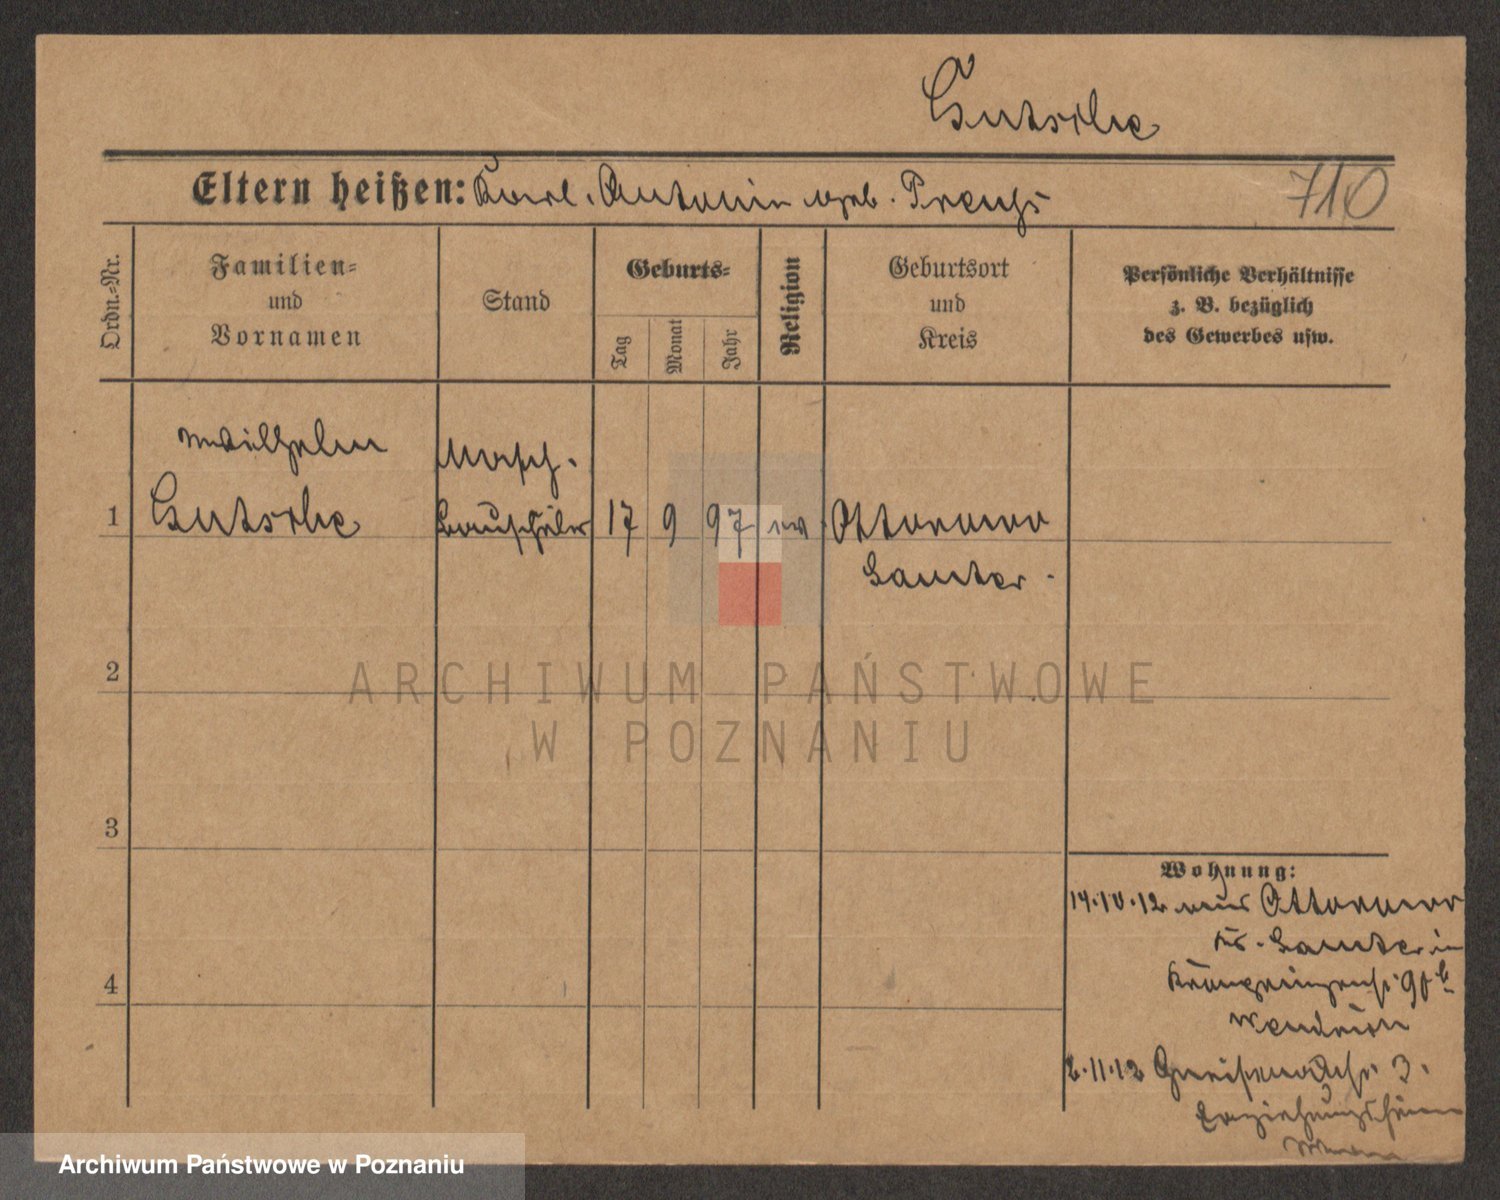 Gutsche
Eltern heißen: Karl. Antonin geb. Preuß
710
Ordn.-Nr.
Familien-
und
Vornamen
Stand
Geburts-
Tag
Monat
Jahr
Religion
Geburtsort
und
Kreis
Persönliche Verhältnisse
z. B. bezüglich
des Gewerbes usw.
Wilhelm
Masch.
1 Gutsche Bauschüler 17 9 97 ev Ottorowo
Samter.
2
ARCHIWUM PAŃSTWOWE
W POZNANIU
3
4
Wohnung:
14.10.12 aus Ottorowo
Kr. Samter in
Kronprinzenstr. 90 b
2.11.12 Gneisenaustr. 3.
Erziehungsheim
Archiwum Państwowe w Poznaniu